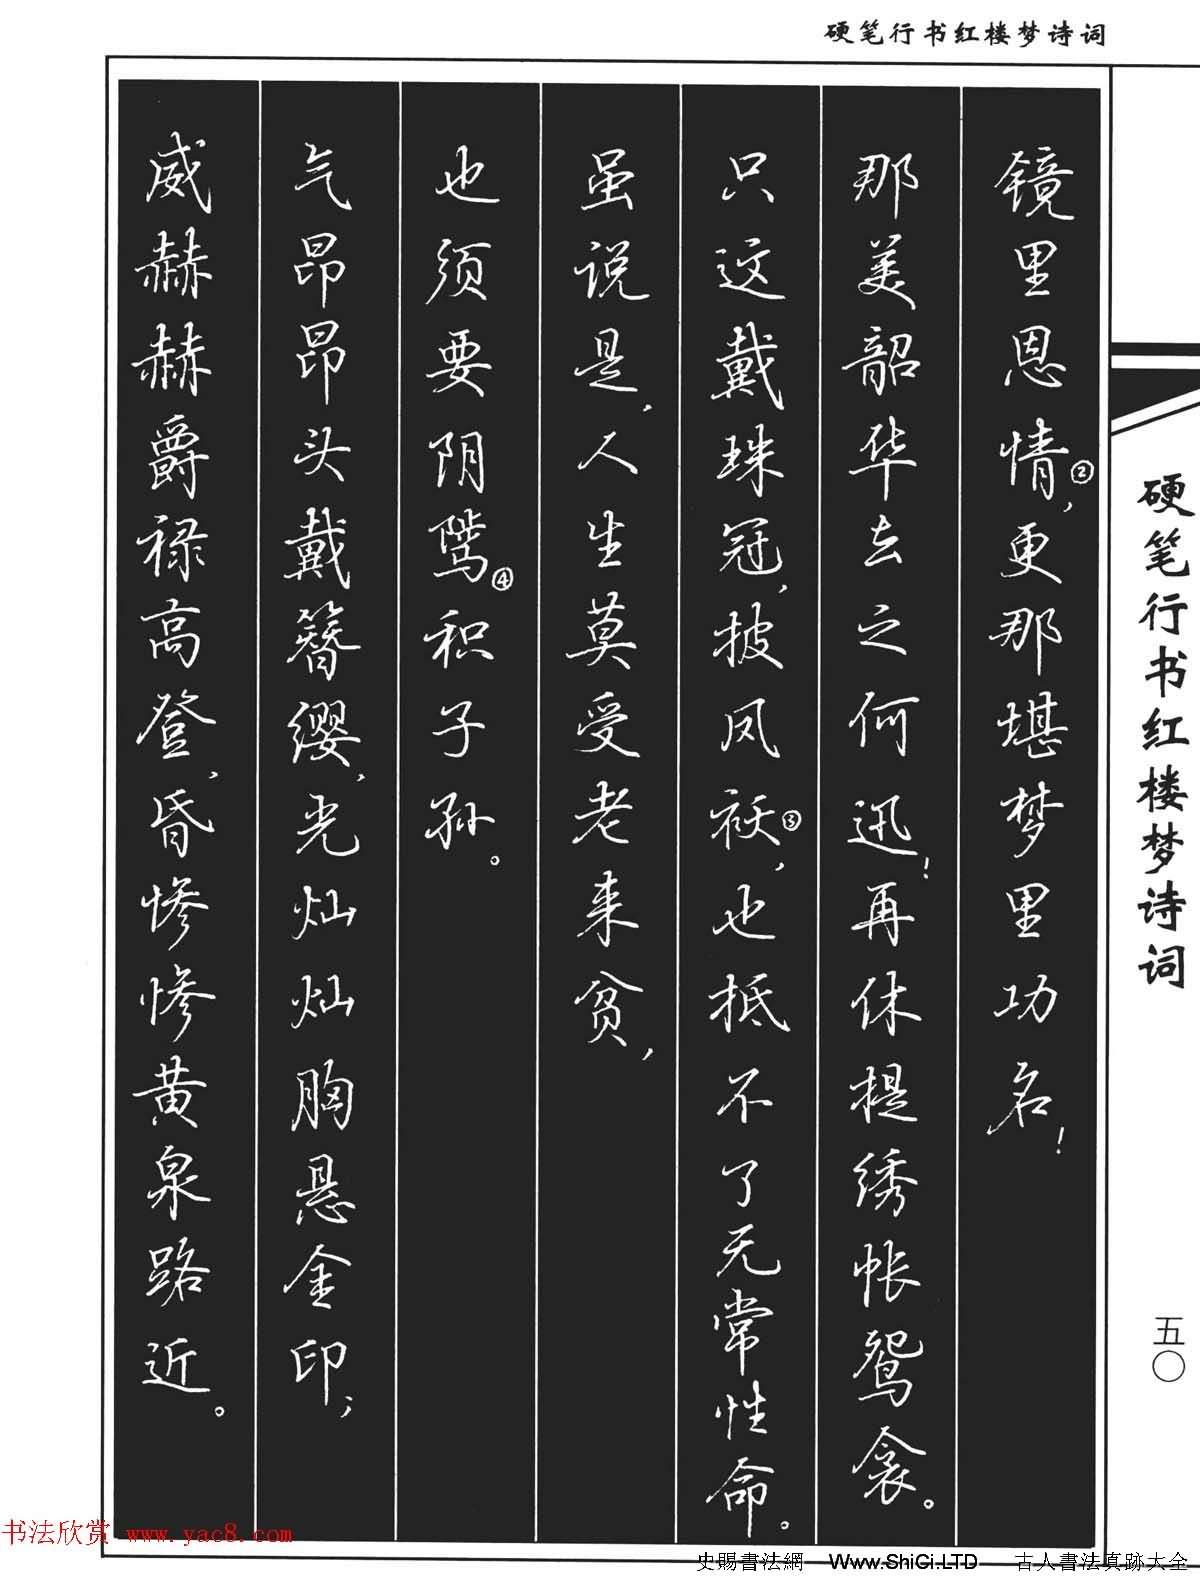 硬笔行书红楼梦诗词
镜里恩情②,更那堪梦里功名!
那美韶华去之何迅!再休提绣帐鸳衾。
只这戴珠冠,披凤袄③,也抵不了无常性命。
虽说是,人生莫受老来贫,
也须要阴骘④积子孙。
气昂昂头戴簪缨,光灿灿胸悬金印;
威赫赫爵禄高登,昏惨惨黄泉路近。
硬笔行书红楼梦诗词
五〇
书法欣赏 www.yac8.com
史賜書法網 Www.ShiCi.LTD 古人書法真跡大全